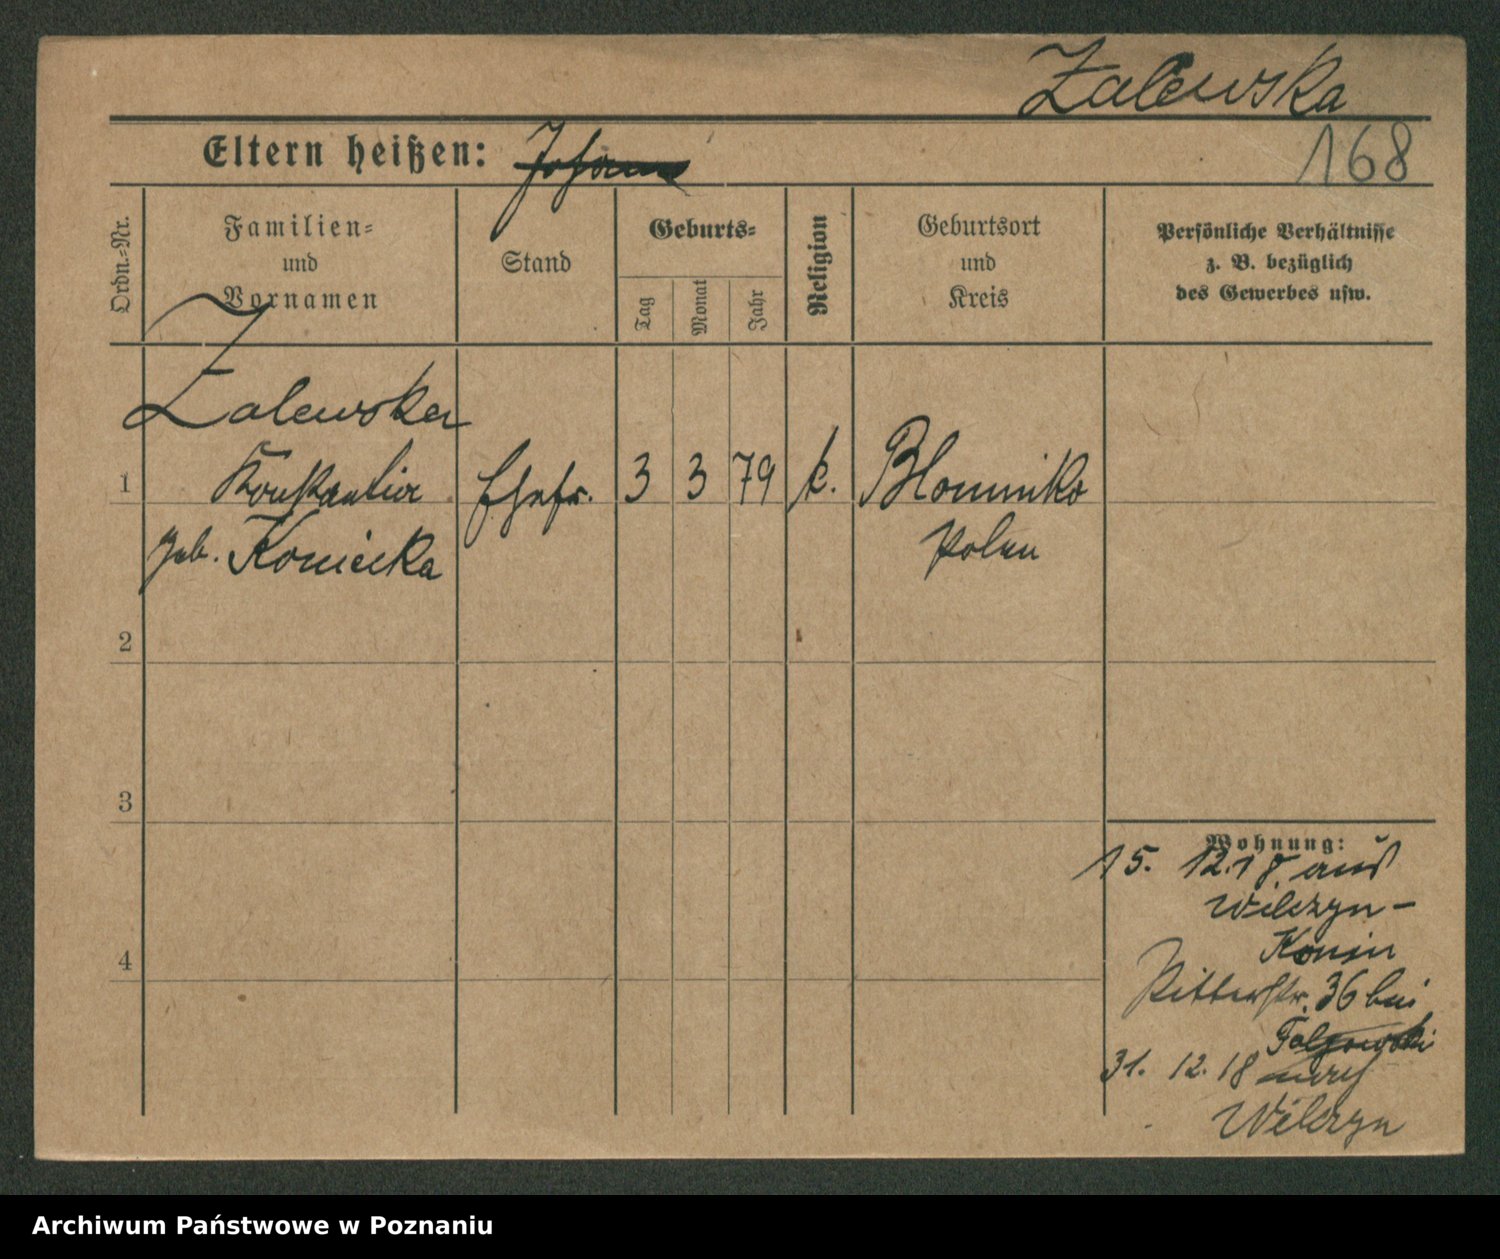 Zalewska
168
Eltern heißen: Johann
Ordn.-Nr.
Familien-
und
Vornamen
Stand
Geburts-
Tag
Monat
Jahr
Religion
Geburtsort
und
Kreis
Persönliche Verhältnisse
z. B. bezüglich
des Gewerbes usw.
Zalewska
1 Konstantia Ehefr. 3 3 79 k. Blomniko
geb. Koniecka Polen
2
3
4
Wohnung:
15. 12.18. aus
Wilczyn-
Konin
Ritterstr. 36 bei
31. 12. 18 nach
Wilczyn
Archiwum Państwowe w Poznaniu